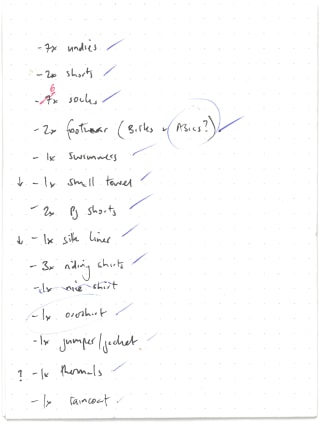 - 7x undies
- 2x shorts
6
- 7x socks
- 2x footwear (Birks + ASICS?)
- 1x swimmers
↓ - 1x small towel
- 2x PJ shorts
↓ - 1x silk liner
- 3x riding shirts
- 1x nice shirt
- 1x overshirt
- 1x jumper/jacket
? - 1x thermals
- 1x raincoat